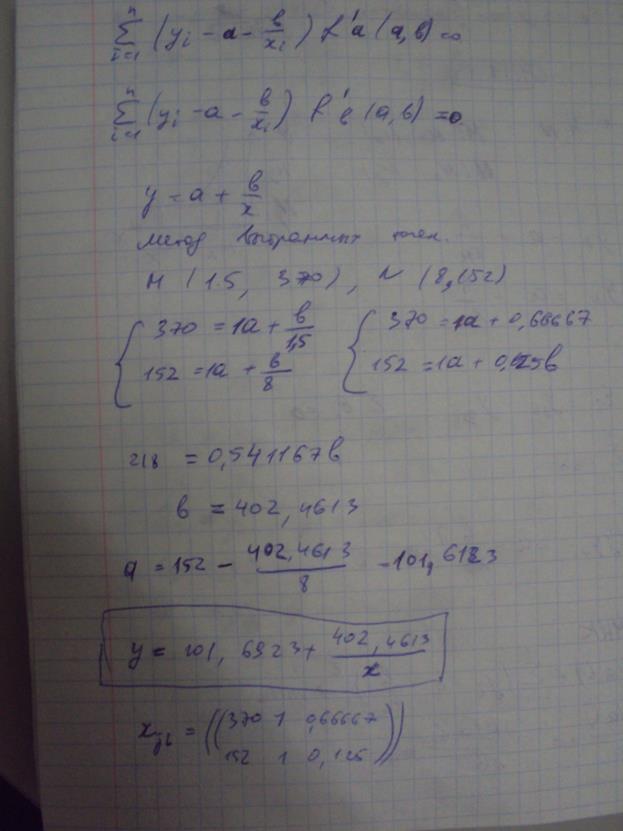 n∑i=1 (yi - a - в/xi) f'a (a, в) = 0
n∑i=1 (yi - a - в/xi) f'в (a, в) = 0
y = a + в/x
метод выбранных точек.
M (1.5, 370), N (8, 152)
370 = 1a + в/1,5 370 = 1a + 0,66667
152 = 1a + в/8 152 = 1a + 0,125в
218 = 0,541167в
в = 402,4613
a = 152 - 402,4613/8 = 101,6123
y = 101,6923 + 402,4613/x
= ((370 1 0,66667
152 1 0,125))